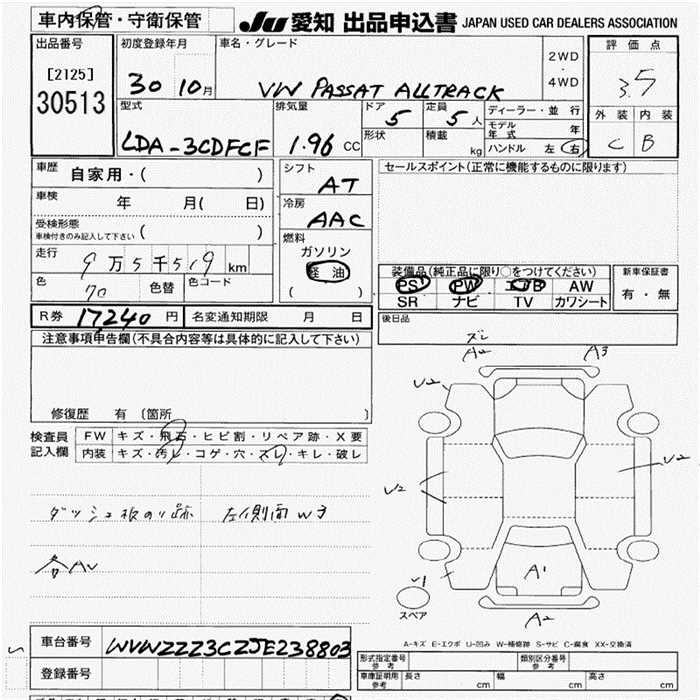 車内保管・守衛保管 JU 愛知 出品申込書 JAPAN USED CAR DEALERS ASSOCIATION
出品番号 初度登録年月 車名・グレード 2WD・4WD 評価点
[2125]
30513 30 10月 VW PASSAT ALLTRACK 3.5
型式 排気量 ドア 定員 ディーラー・並行 外装 内装
LDA-3CDFCF 1.96 CC 5 5人 モデル年式 年 C B
形状 積載 kg ハンドル 左 右
車歴 自家用・( ) シフト AT セールスポイント(正常に機能するものに限ります)
車検 年 月( 日) 冷房 AAC
受検形態 ( )
車検付きのみ記入して下さい
燃料 ガソリン
軽油
( )
走行 9万5千519 km 装備品(純正品に限り○をつけてください) 新車保証書
色 70 色替 色コード PS PW エアB AW 有・無
SR ナビ TV カワシート
R券 17240円 名変通知期限 月 日 後日品
注意事項申告欄(不具合内容等は具体的に記入して下さい)
ズレ
A2 A3
U2
修復歴 有 〔箇所 〕
検査員記入欄 FW キズ・飛石・ヒビ割・リペア跡・X要
内装 キズ・汚レ・コゲ・穴・スレ・キレ・破レ
U2 U2
ダッシュ板のり跡 左右側面W3
各AU
A1
U1
スペア A2
A-キズ E-エクボ U-凹み W-補修跡 S-サビ C-腐食 XX-交換済
車台番号 WVWZZZ3CZJE238803
登録番号
形式指定番号 参考 類別区分番号 参考
車庫証明用 参考 長さ cm 幅 cm 高さ cm